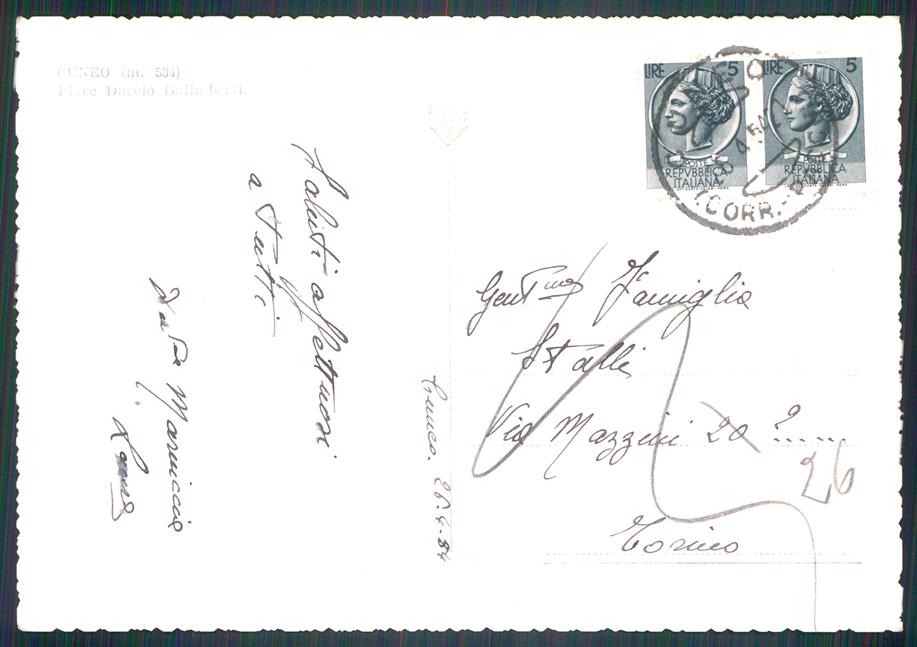 CUNEO (m. 534)
Piazza Duccio Galimberti
Saluti affettuosi
a Tutti
Cuneo. 26-4-54
LIRE 5
POSTE
REPVBBLICA
ITALIANA
LIRE 5
POSTE
REPVBBLICA
ITALIANA
CUNEO
4.54
(CORR.
Gent.ma Famiglia
Stalli
Via Mazzini 20 ?.....
26
Torino